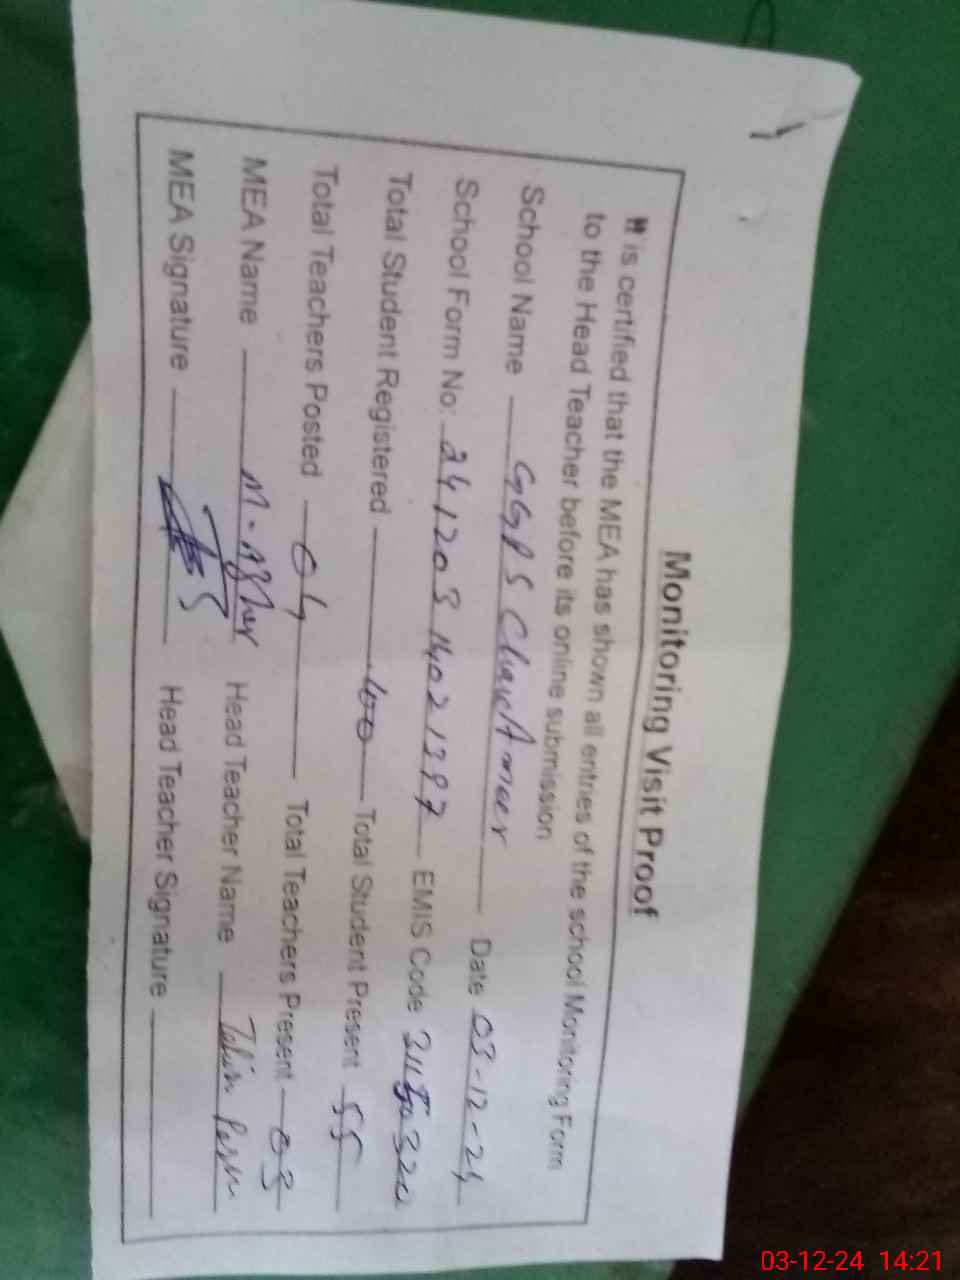 Monitoring Visit Proof
It is certified that the MEA has shown all entries of the school Monitoring Form
to the Head Teacher before its online submission
School Name GGPS Date 03-12-24
School Form No: 24120314021397 EMIS Code
Total Student Registered 100 Total Student Present 55
Total Teachers Posted 04 Total Teachers Present 03
MEA Name M. Azher Head Teacher Name
MEA Signature Head Teacher Signature
03-12-24 14:21